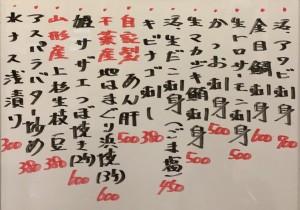 活アワビ刺 700
金目鯛刺 600
生トリ貝・モンゴ刺 500
かつお刺身 500
生マカジキ鮪刺身 500
活生だこ刺(ごま塩) 450
キビナゴ刺 380
自家製あん肝 500
千葉産地はまぐり浜焼(3ケ) 600
姫サザエつぼ焼き(2ケ) 600
山形産上杉生枝豆 380
アスパラバター炒め 380
水ナス浅漬け 300